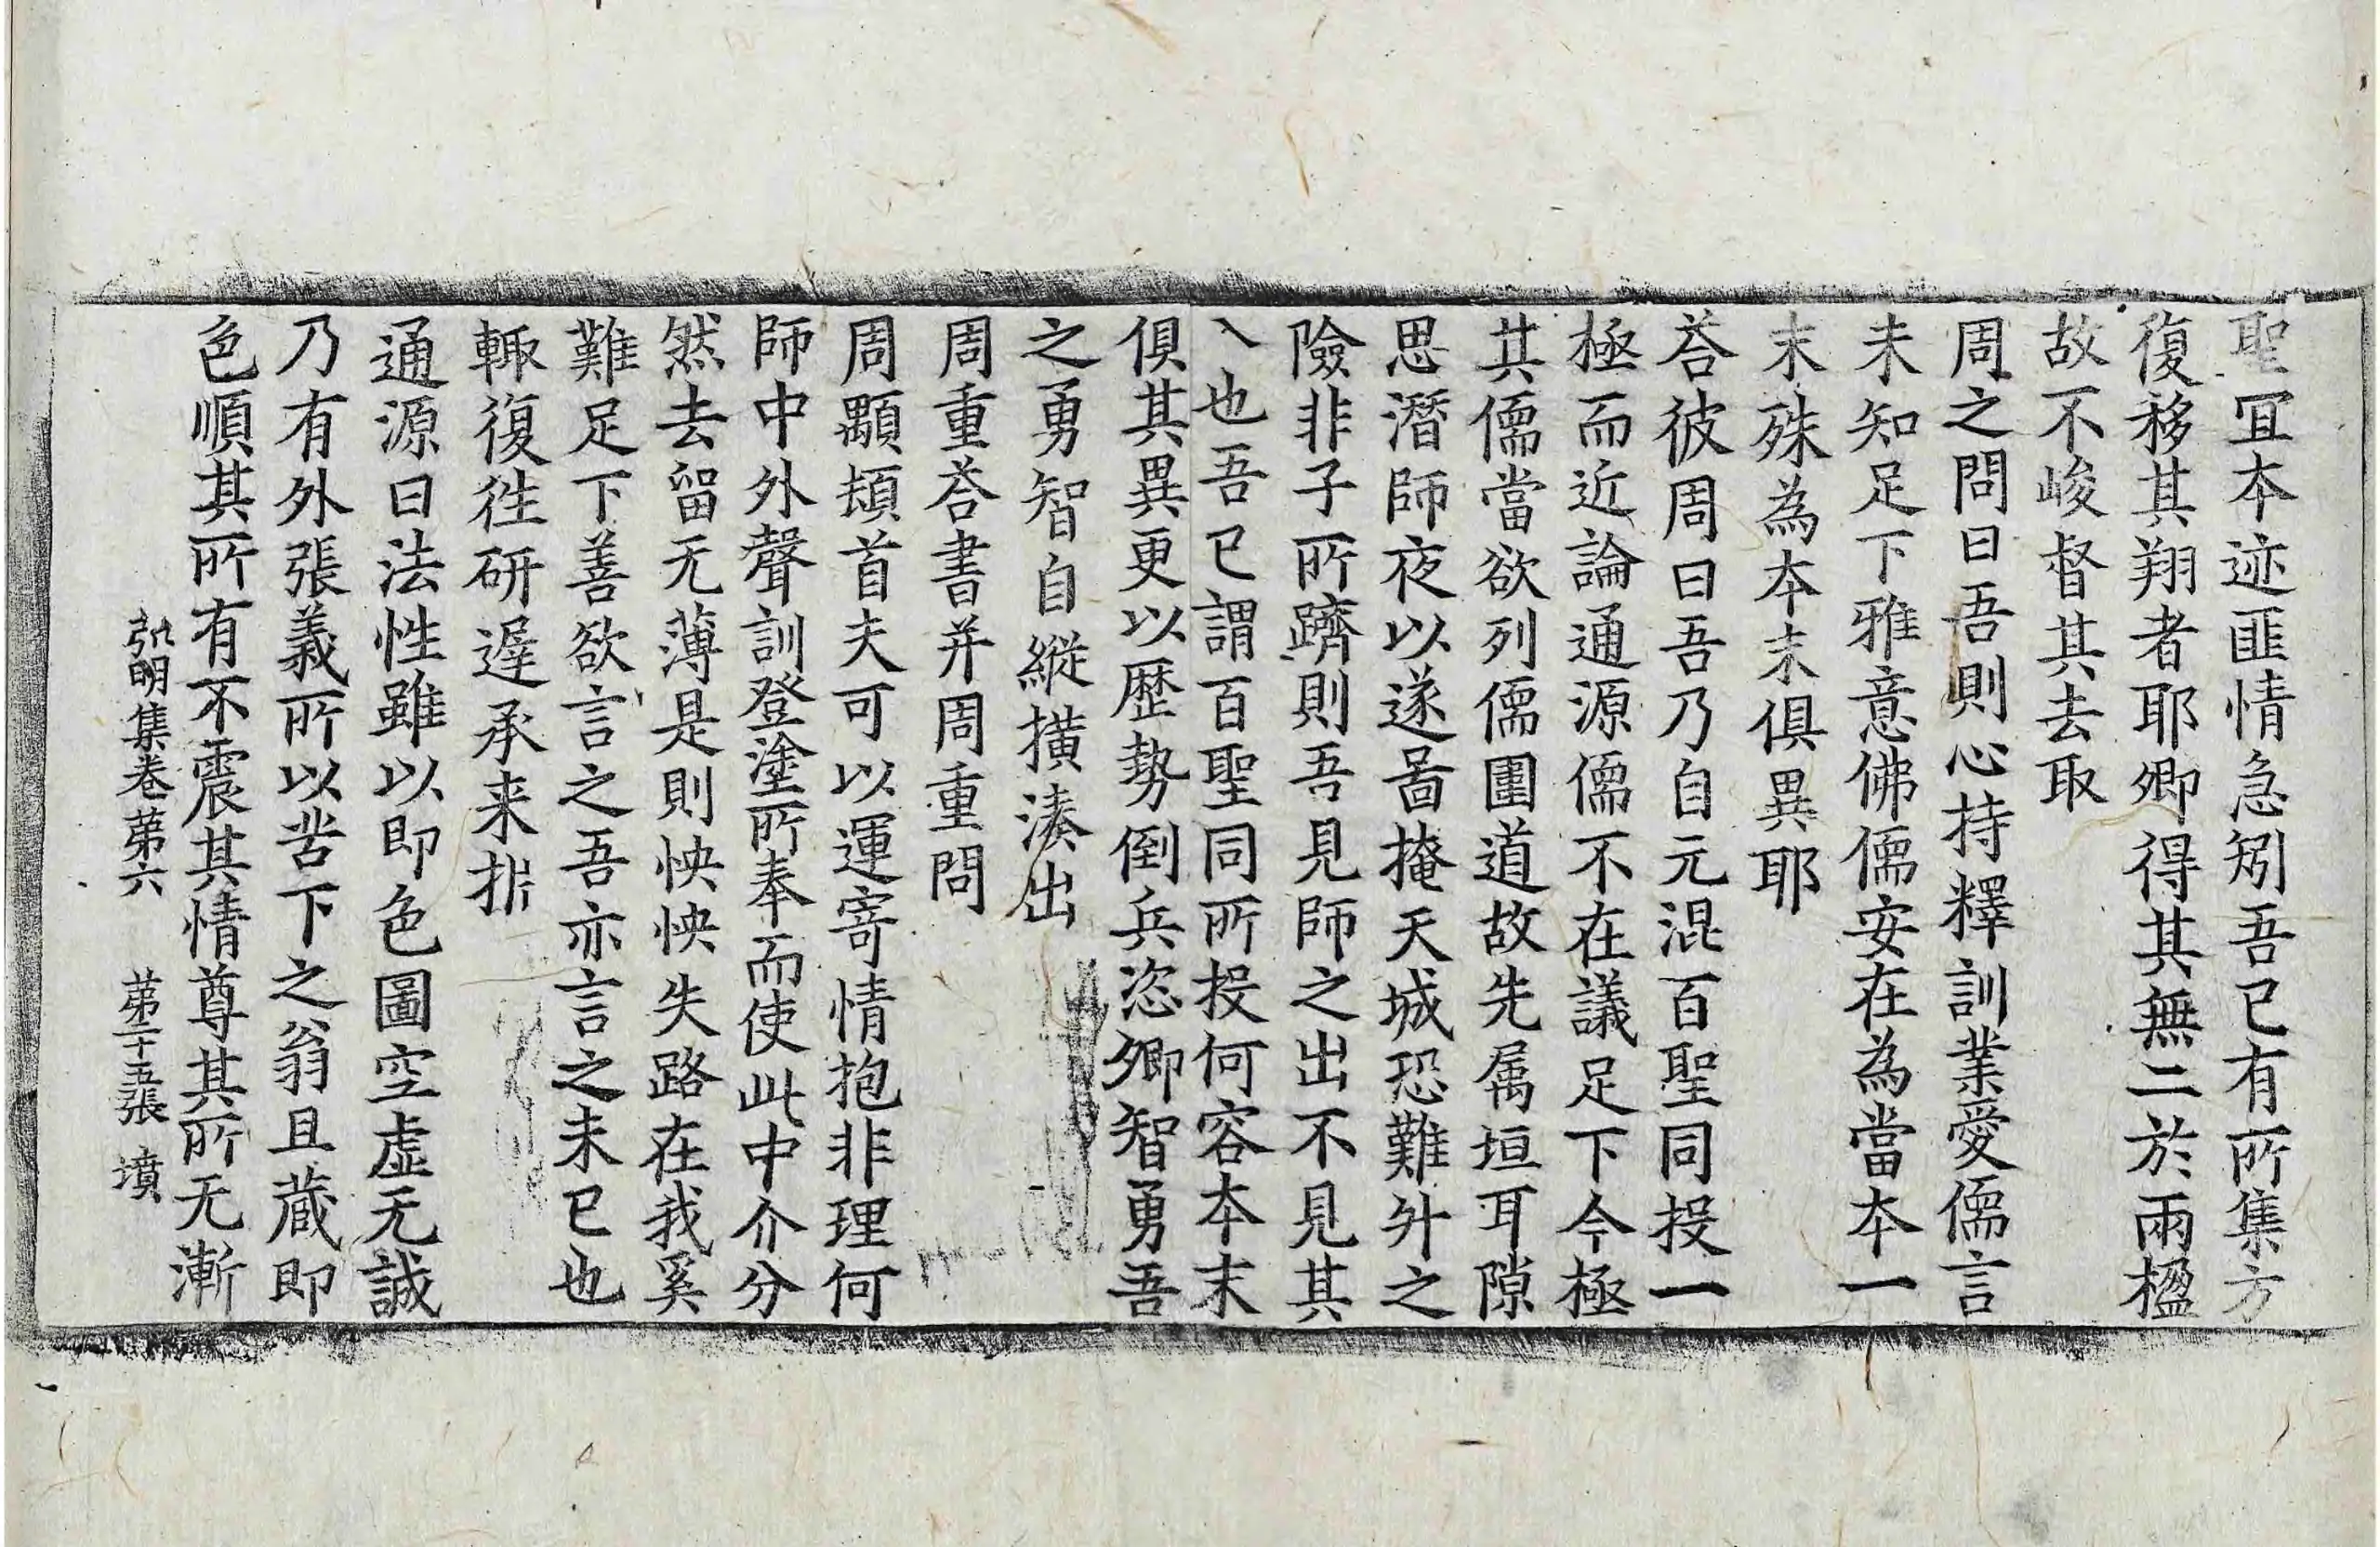 聖冝本迹匪情急矧吾已有所集方
復移其翔者耶卿得其無二於兩楹
故不峻督其去取
周之問曰吾則心持釋訓業愛儒言
未知足下雅意佛儒安在為當本一
末殊為本末俱異耶
荅彼周曰吾乃自元混百聖同投一
極而近論通源儒不在議足下今極
其儒當欲列儒圍道故先属垣耳隙
思潛師夜以遂啚掩天城恐難升之
險非子所躋則吾見師之出不見其
入也吾已謂百聖同所投何容本末
俱其異更以歷勢倒兵恣卿智勇吾
之勇智自縱撗湊出
周重荅書并周重問
周顒頓首夫可以運寄情抱非理何
師中外聲訓登塗所奉而使此中介分
然去留无薄是則怏怏失路在我奚
難足下善欲言之吾亦言之未已也
輙復徃研遟承来㧗
通源曰法性雖以即色圖空虛无誠
乃有外張義所以苦下之翁且蔵即
色順其所有不震其情尊其所无漸
弘明集卷苐六 苐二十五張 墳